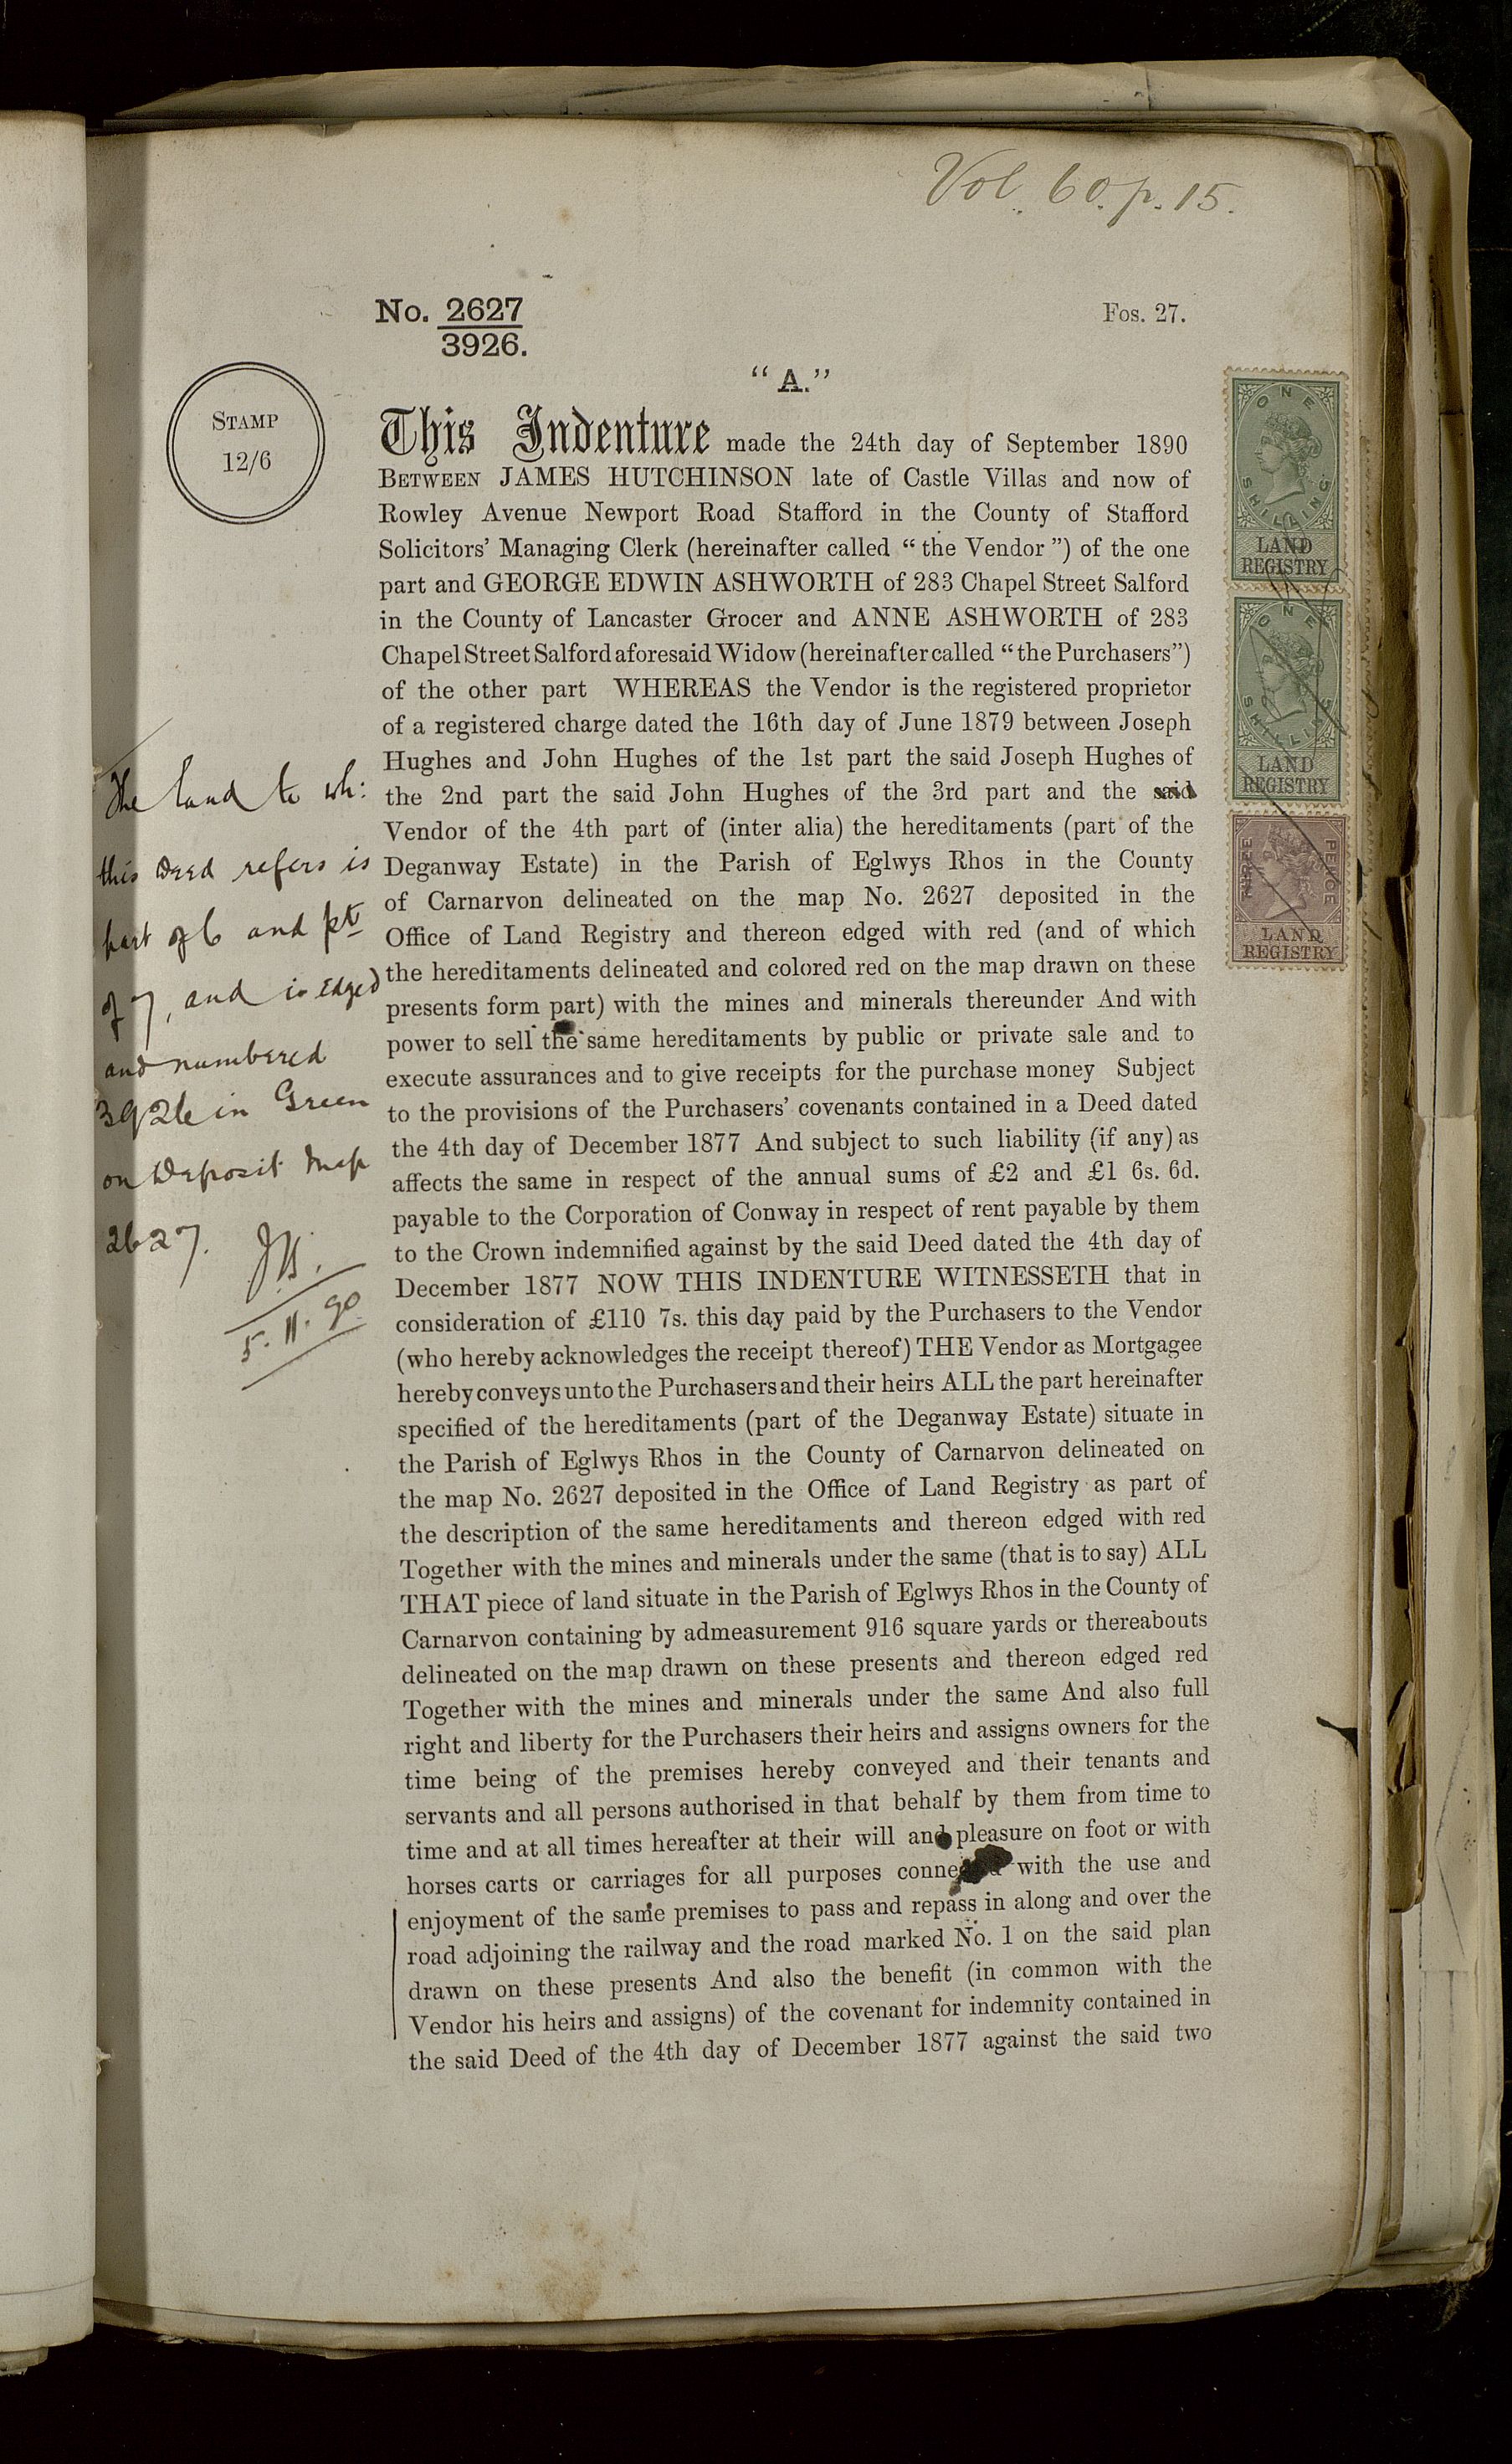 Vol. 60. p. 15.
No. 2627
3926.
Fos. 27.
"A."
STAMP
12/6
This Indenture made the 24th day of September 1890
BETWEEN JAMES HUTCHINSON late of Castle Villas and now of
Rowley Avenue Newport Road Stafford in the County of Stafford
Solicitors' Managing Clerk (hereinafter called "the Vendor") of the one
part and GEORGE EDWIN ASHWORTH of 283 Chapel Street Salford
in the County of Lancaster Grocer and ANNE ASHWORTH of 283
Chapel Street Salford aforesaid Widow (hereinafter called "the Purchasers")
of the other part WHEREAS the Vendor is the registered proprietor
of a registered charge dated the 16th day of June 1879 between Joseph
Hughes and John Hughes of the 1st part the said Joseph Hughes of
the 2nd part the said John Hughes of the 3rd part and the said
Vendor of the 4th part of (inter alia) the hereditaments (part of the
Deganway Estate) in the Parish of Eglwys Rhos in the County
of Carnarvon delineated on the map No. 2627 deposited in the
Office of Land Registry and thereon edged with red (and of which
the hereditaments delineated and colored red on the map drawn on these
presents form part) with the mines and minerals thereunder And with
power to sell the same hereditaments by public or private sale and to
execute assurances and to give receipts for the purchase money Subject
to the provisions of the Purchasers' covenants contained in a Deed dated
the 4th day of December 1877 And subject to such liability (if any) as
affects the same in respect of the annual sums of £2 and £1 6s. 6d.
payable to the Corporation of Conway in respect of rent payable by them
to the Crown indemnified against by the said Deed dated the 4th day of
December 1877 NOW THIS INDENTURE WITNESSETH that in
consideration of £110 7s. this day paid by the Purchasers to the Vendor
(who hereby acknowledges the receipt thereof) THE Vendor as Mortgagee
hereby conveys unto the Purchasers and their heirs ALL the part hereinafter
specified of the hereditaments (part of the Deganway Estate) situate in
the Parish of Eglwys Rhos in the County of Carnarvon delineated on
the map No. 2627 deposited in the Office of Land Registry as part of
the description of the same hereditaments and thereon edged with red
Together with the mines and minerals under the same (that is to say) ALL
THAT piece of land situate in the Parish of Eglwys Rhos in the County of
Carnarvon containing by admeasurement 916 square yards or thereabouts
delineated on the map drawn on these presents and thereon edged red
Together with the mines and minerals under the same And also full
right and liberty for the Purchasers their heirs and assigns owners for the
time being of the premises hereby conveyed and their tenants and
servants and all persons authorised in that behalf by them from time to
time and at all times hereafter at their will and pleasure on foot or with
horses carts or carriages for all purposes connected with the use and
enjoyment of the same premises to pass and repass in along and over the
road adjoining the railway and the road marked No. 1 on the said plan
drawn on these presents And also the benefit (in common with the
Vendor his heirs and assigns) of the covenant for indemnity contained in
the said Deed of the 4th day of December 1877 against the said two
The land to wh:
this Deed refers is
part of 6 and pt
of 7, and is edged
and numbered
3926 in Green
on Deposit Map
2627.
JH.
5. 11. 90
ONE
SHILLING
LAND
REGISTRY
ONE
SHILLING
LAND
REGISTRY
THREE
PENCE
LAND
REGISTRY